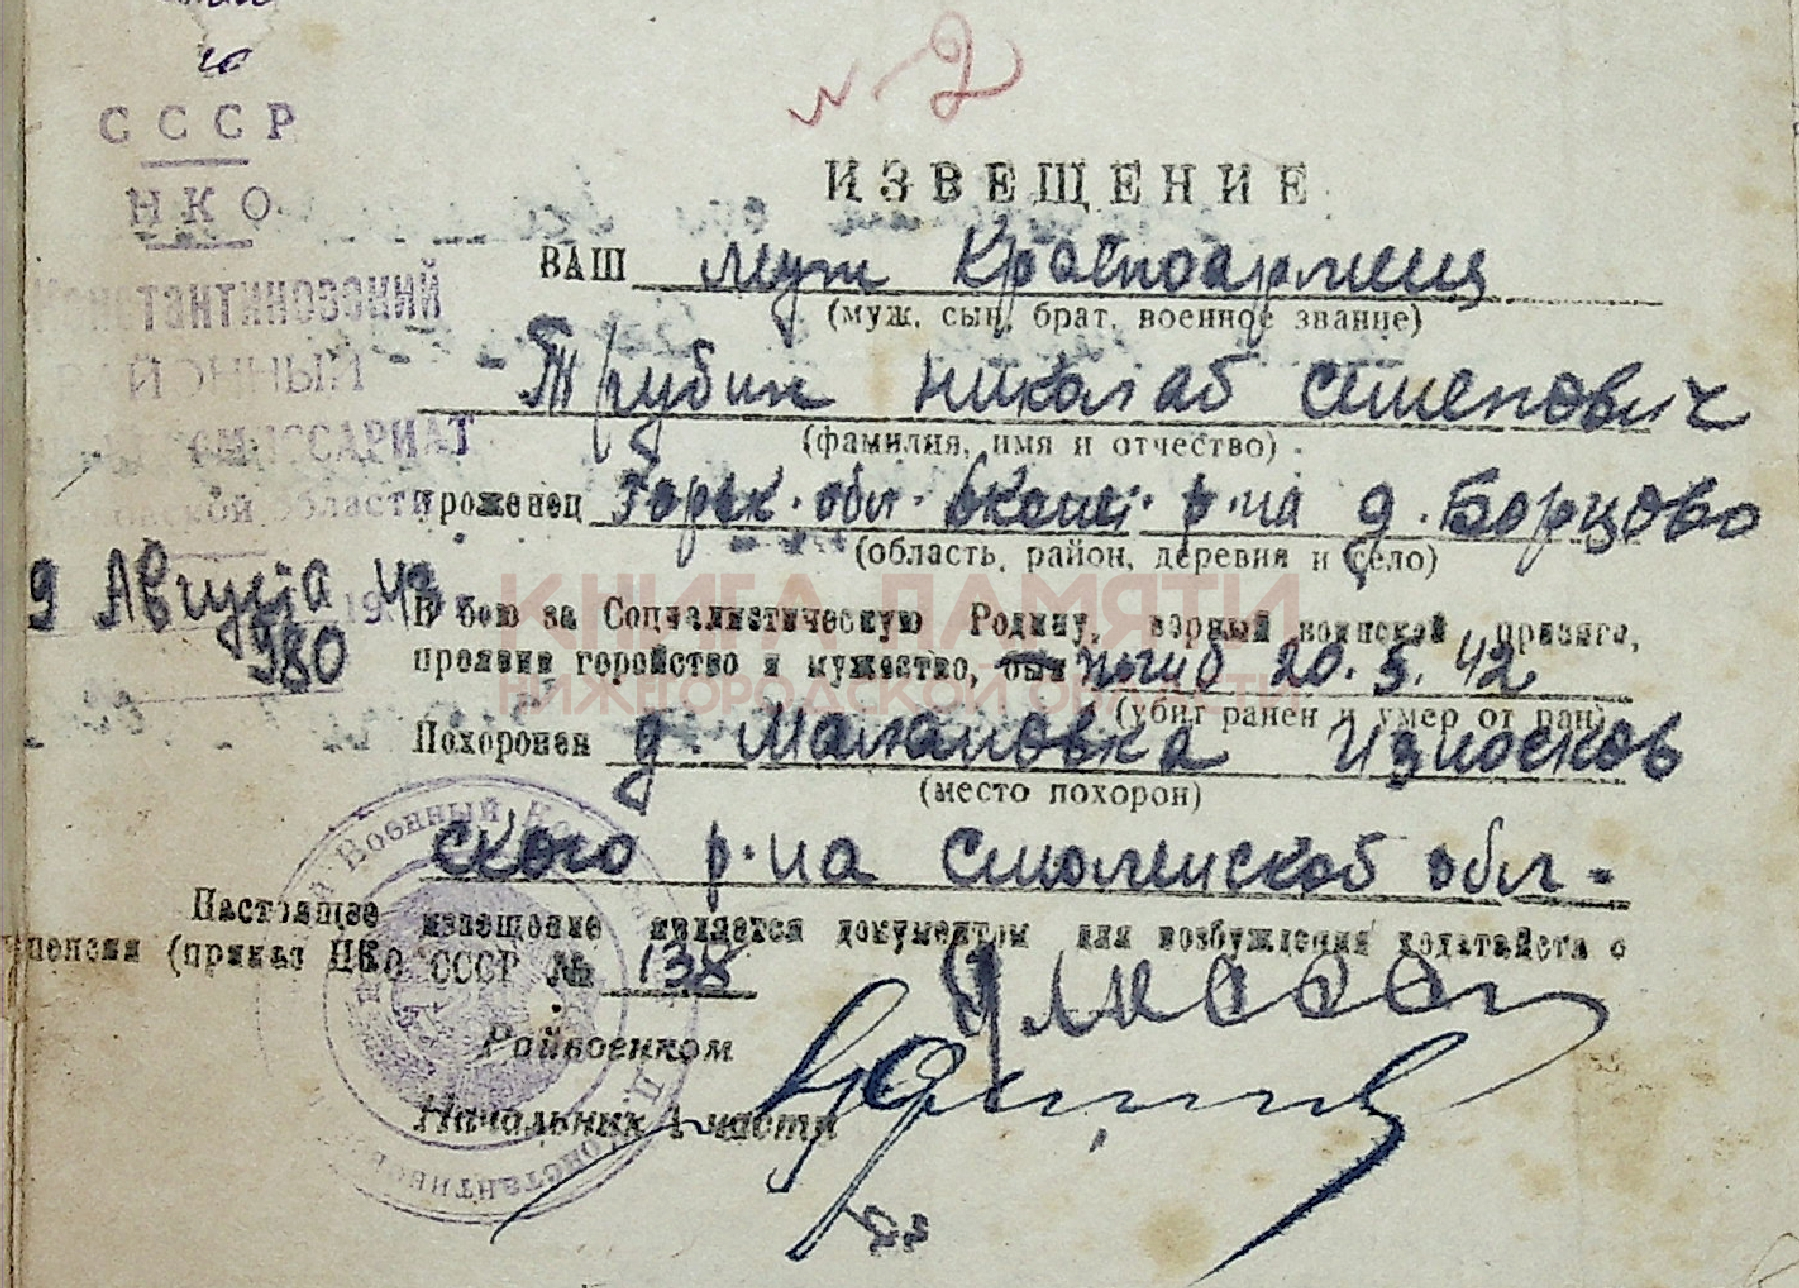 № 2
СССР
НКО
ИЗВЕЩЕНИЕ
Константиновский
РАЙОННЫЙ
ВАШ муж Красноармеец
(муж, сын, брат, военное звание)
Трубин Николай Семенович
(фамилия, имя и отчество)
уроженец Горьк. обл. р-на д. Борцово
(область, район, деревня и село)
9 Августа 1943
980
В бою за Социалистическую Родину, верный воинской присяге,
проявив геройство и мужество, был погиб 20.5.42
(убит ранен и умер от ран)
Похоронен д Малановка Износков
(место похорон)
ского р-на Смоленской обл-
Настоящее извещение является документом для возбуждения ходатайств о
пенсии (приказ НКО СССР № 138
Райвоенком
Начальник 1 части
КНИГА ПАМЯТИ
НИЖЕГОРОДСКОЙ ОБЛАСТИ